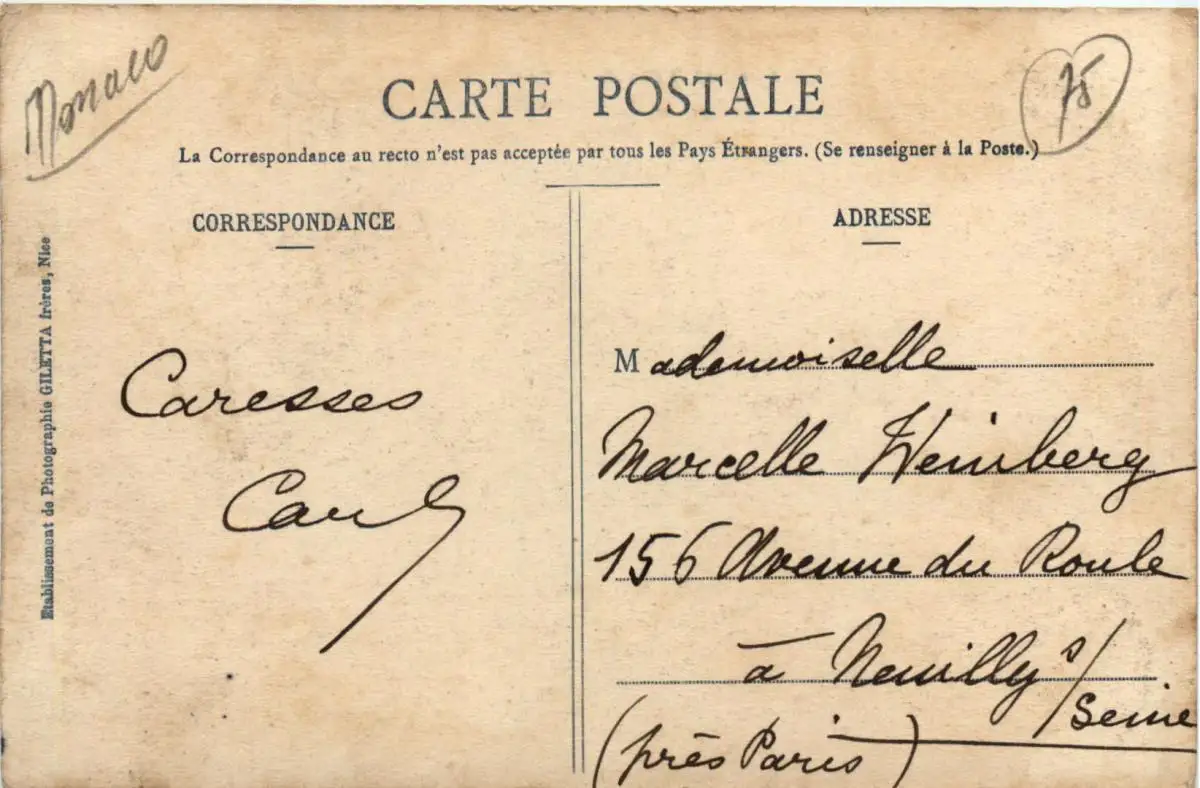 Monaco
75
CARTE POSTALE
La Correspondance au recto n'est pas acceptée par tous les Pays Étrangers. (Se renseigner à la Poste.)
CORRESPONDANCE
Caresses
Carl
ADRESSE
Mademoiselle
Marcelle Weinberg
156 Avenue du Roule
à Neuilly s/Seine
(près Paris)
Etablissement de Photographie GILETTA frères, Nice